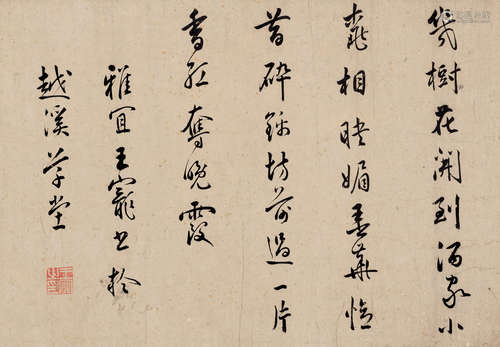 幾樹花開到酒家小
窗相映媚春華憶
昔碎錦坊前過一片
香紅奪晚霞
雅宜王寵書於
越溪草堂